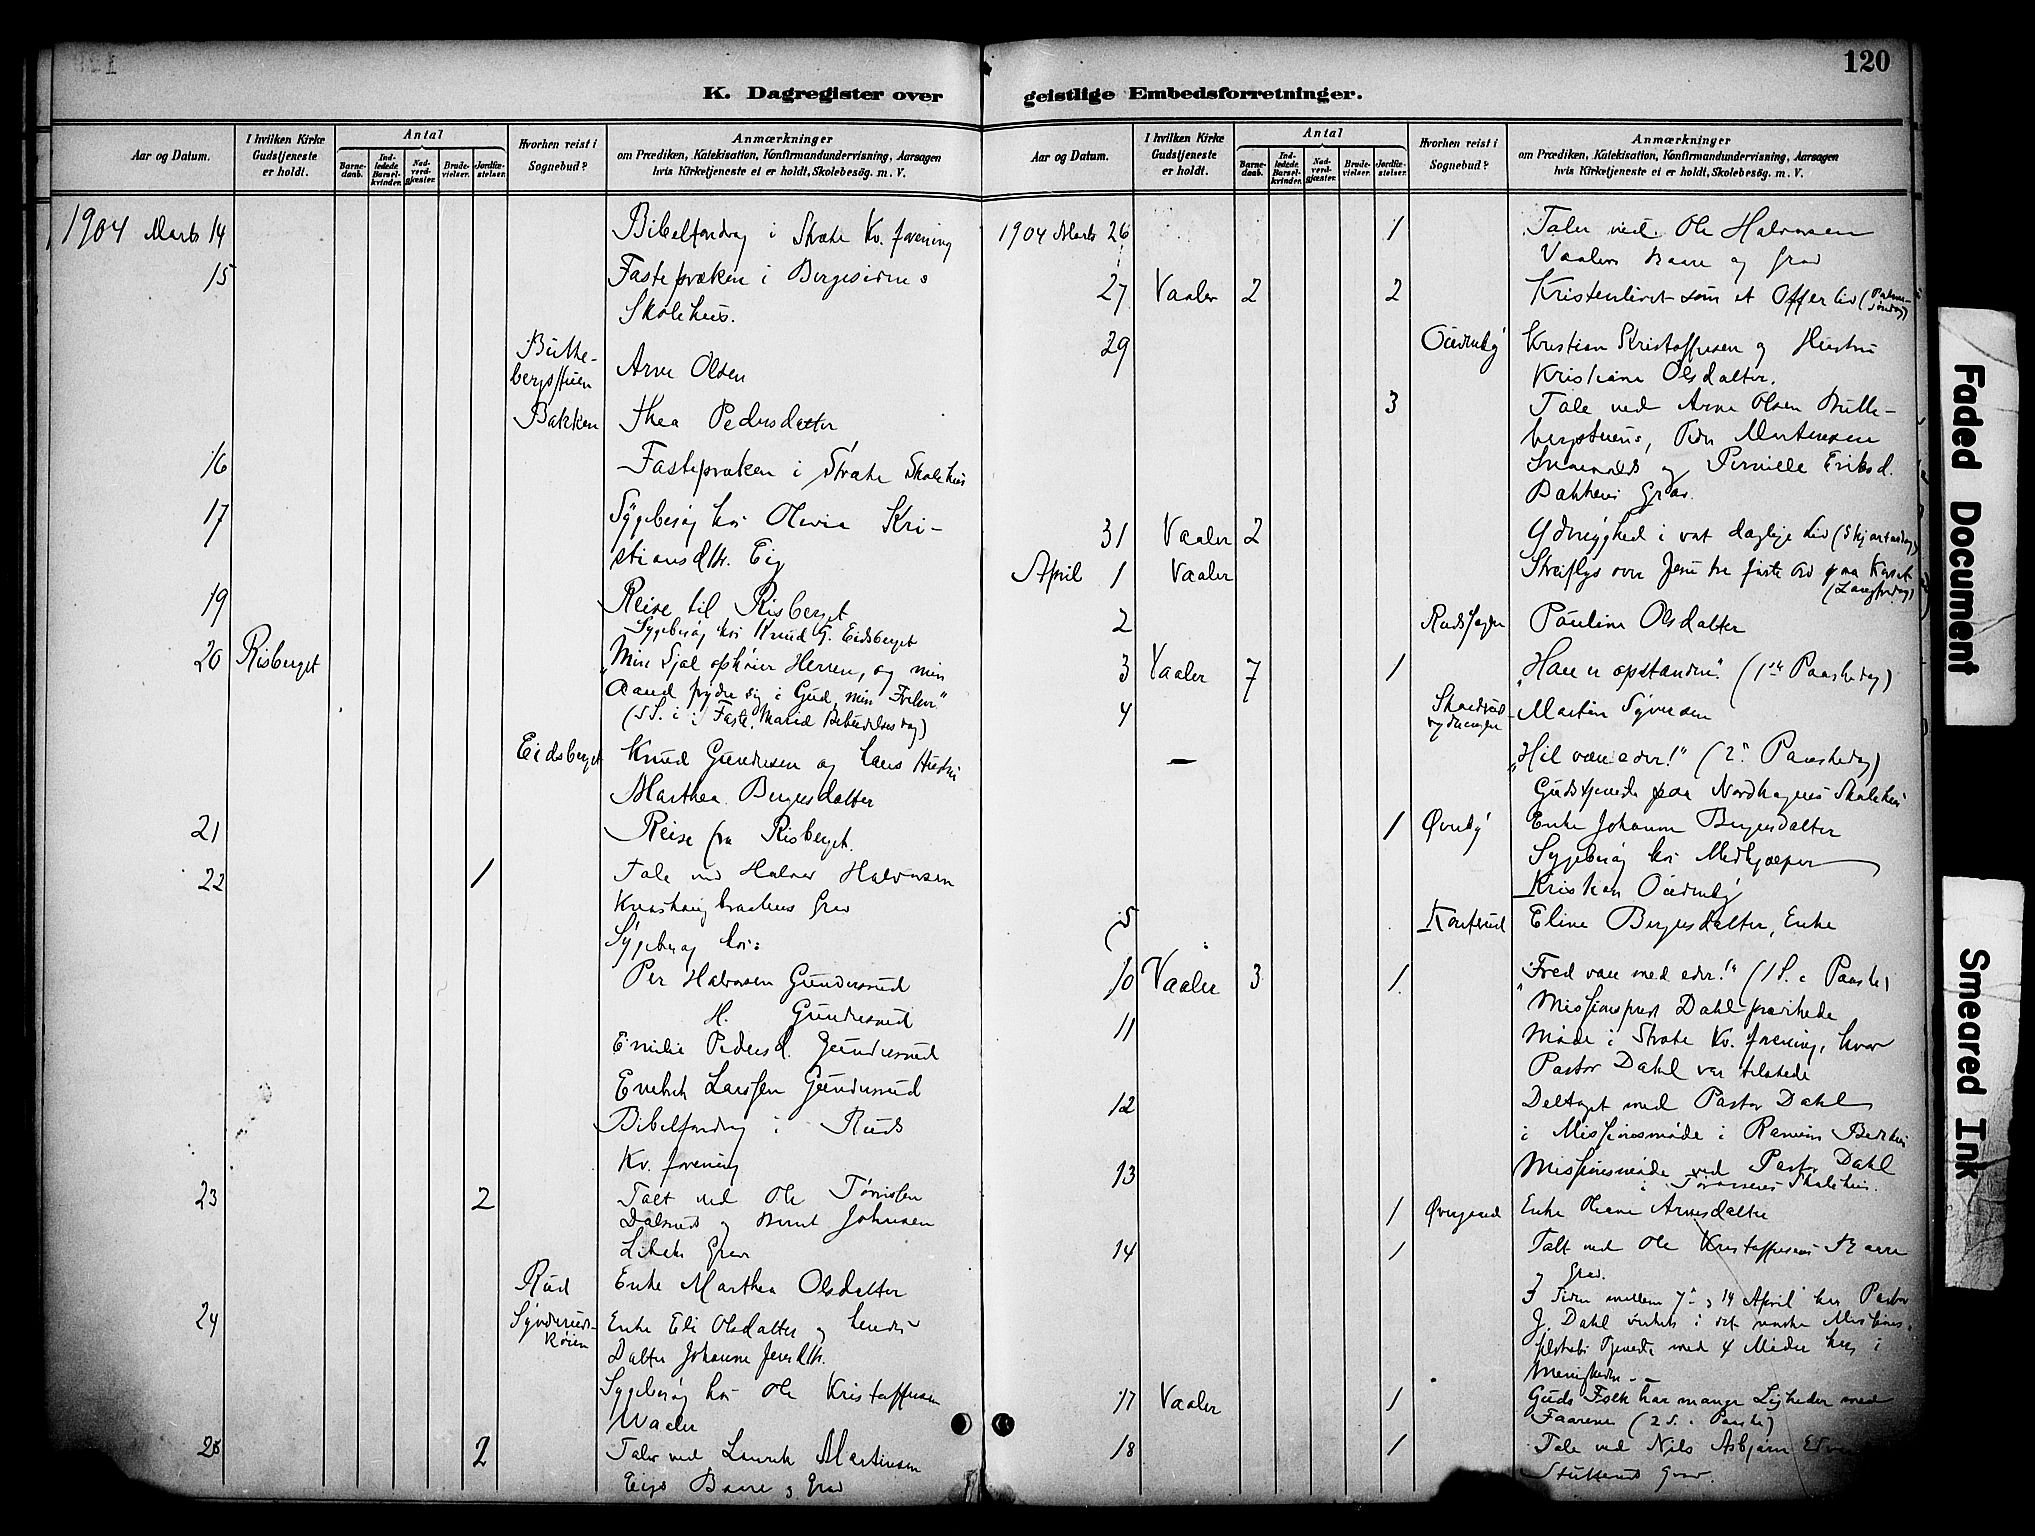 120
K. Dagregister over geistlige Embedsforretninger.
Aar og Datum.
I hvilken Kirke Gudstjeneste er holdt.
Antal
Barnedaab.
Indledede Barselkvinder.
Nadverdgjæster.
Brudevielser.
Jordfæstelser.
Hvorhen reist i Sognebud?
Anmærkninger
om Prædiken, Katekisation, Konfirmandundervisning, Aarsagen
hvis Kirketjeneste ei er holdt, Skolebesøg. m. V.
1904 Marts 14 Bibelforedrag i Stræte Kv. forening
15 Fastepræken i Bergesidens
Skolehus.
Arne Olsen
Bakken Thea Pedersdatter
16 Fastepræken i Stræte Skolehus
17 Sygebesøg hos Olevia Kri-
stiansdtr. Eig
19 Reise til Risberget
Sygebesøg hos Knud G. Eidsberget
20 Risberget "Min Sjæl ophøier Herren, og min
Aand fryder sig i Gud, min Frelser"
(5 S. i Faste, Mariæ Bebudelses dag)
Eidsberget Knud Gundersen og hans Hustru
Marthea Bergersdatter
21 Reise fra Risberget.
22 1 Tale ved Halvor Halvorsen
Grav
Sygebesøg hos:
Per Halvorsen Gundersrud
H. Gundersrud
Emilie Pedersd. Gundersrud
Larssen Gundersrud
Bibelforedrag i Ruds
Kv. forening
23 2 Talt ved Ole Tønnesen
og Bernt Johnsen
Grav
Rud Enke Marthea Olsdatter
24 Enke Eli Olsdatter og hendes
Datter Johanne Jensdtr.
Sygebesøg hos Ole Kristoffersen
Vaaler
25 2 Taler ved Laurits Martinsen
Eigs Baare og Grav
Aar og Datum.
I hvilken Kirke Gudstjeneste er holdt.
Antal
Barnedaab.
Indledede Barselkvinder.
Nadverdgjæster.
Brudevielser.
Jordfæstelser.
Hvorhen reist i Sognebud?
Anmærkninger
om Prædiken, Katekisation, Konfirmandundervisning, Aarsagen
hvis Kirketjeneste ei er holdt, Skolebesøg. m. V.
1904 Marts 26 1 Taler ved Ole Halvorsen
Vaalers Baare og Grav
27 Vaaler 2 2 Kristenlivet som et Offerliv (Palmesøndag)
29 Kristian Kristoffersen og Hustru
Kristiane Olsdatter.
3 Tale ved Arne Olsen Butte-
bergstuens, Peder Martinsen
og Pernille Eriksd.
Bakkens Grav.
31 Vaaler 2 Ydmyghed i vort daglige Liv (Skjærtorsdag)
April 1 Vaaler Streiflys over Jesu tre første Ord paa Korset
(Langfredag)
2 Pauline Olsdatter
3 Vaaler 7 1 "Han er opstanden". (1ste Paaskedag)
4 Martin Syversen
— "Hil være eder!" (2. Paaskedag)
Gudstjeneste paa Nordhagens Skolehus
1 Øvreby Enke Johanne Bergersdatter
Sygebesøg hos Medhjælper
Kristian
5 Eline Bergersdatter, Enke
10 Vaaler 3 1 "Fred være med eder!" (1 S. e Paaske)
Missionsprest Dahl prædikede
11 Møde i Stræte Kv. forening, hvor
Pastor Dahl var tilstede
12 Deltaget med Pastor Dahl
i Missionsmøde i Bedehus
13 Missionsmøde ved Pastor Dahl
i Skolehus.
1 Enke Oleane Arnesdatter
14 1 Talt ved Ole Kristoffersens Baare
og Grav.
I Tiden mellem 7. og 14 April har Pastor
J. Dahl virket i det norske Missions-
selskabs Tjeneste med 4 Møder her i
Menigheden.
17 Vaaler 1 Guds Folk har mange Ligheder med
Faarene (2 S. e Paaske)
18 1 Tale ved Nils Asbjørn
Grav.
Faded Document
Smeared Ink